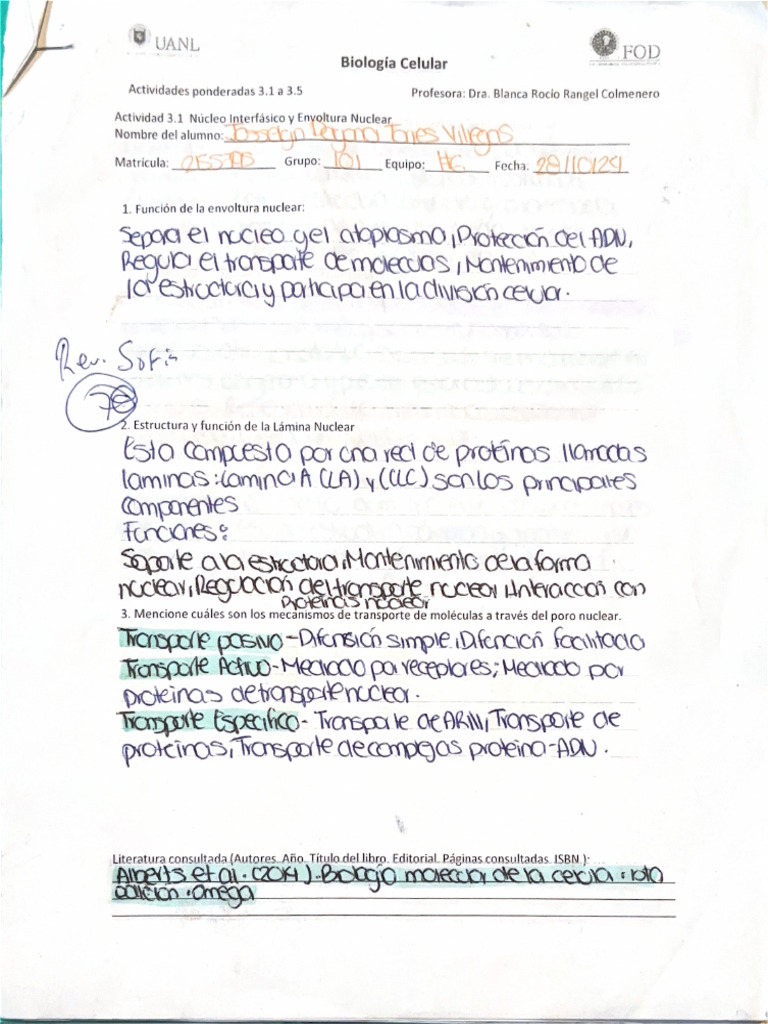 UANL
FOD
Biología Celular
Actividades ponderadas 3.1 a 3.5 Profesora: Dra. Blanca Rocio Rangel Colmenero
Actividad 3.1 Núcleo Interfásico y Envoltura Nuclear
Nombre del alumno: Josselyn Dayana Torres Villegas
Matricula: Grupo: 101 Equipo: Fecha: 28/10/24
1. Función de la envoltura nuclear:
Separa el nucleo y el citoplasma, Protección del ADN,
Regula el transporte de moleculas, Mantenimiento de
la estructura y participa en la división celular.
Rev. Sofia
78
2. Estructura y función de la Lámina Nuclear
Esta compuesta por una red de proteínas llamadas
laminas: Lamina A (LA) y (CLC) son los principales
componentes
Funciones:
Soporte a la estructura, Mantenimiento de la forma
nuclear, Regulación del transporte nuclear, Interaccion con
proteinas nuclear
3. Mencione cuáles son los mecanismos de transporte de moléculas a través del poro nuclear.
Transporte pasivo - Difensión simple, Difención facilitada
Transporte Activo - Mediado por receptores; Mediado por
proteinas de transporte nuclear.
Transporte Especifico - Transporte de ARN, Transporte de
proteinas, Transporte de complejas proteina-ADN.
Literatura consultada (Autores. Año. Título del libro. Editorial. Páginas consultadas. ISBN ):
Alberts et al. (2014). Biología molecular de la celula.
edición. Omega